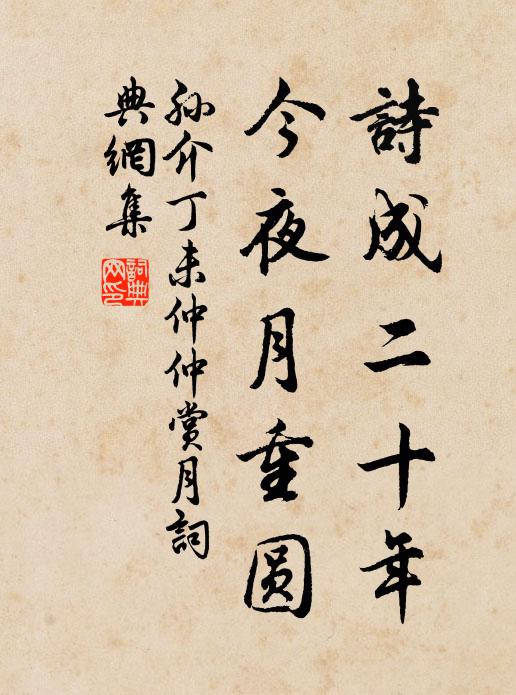 詩成二十年
今夜月重圆
孙介丁未仲仲賞月詞
典網集
詞典网印